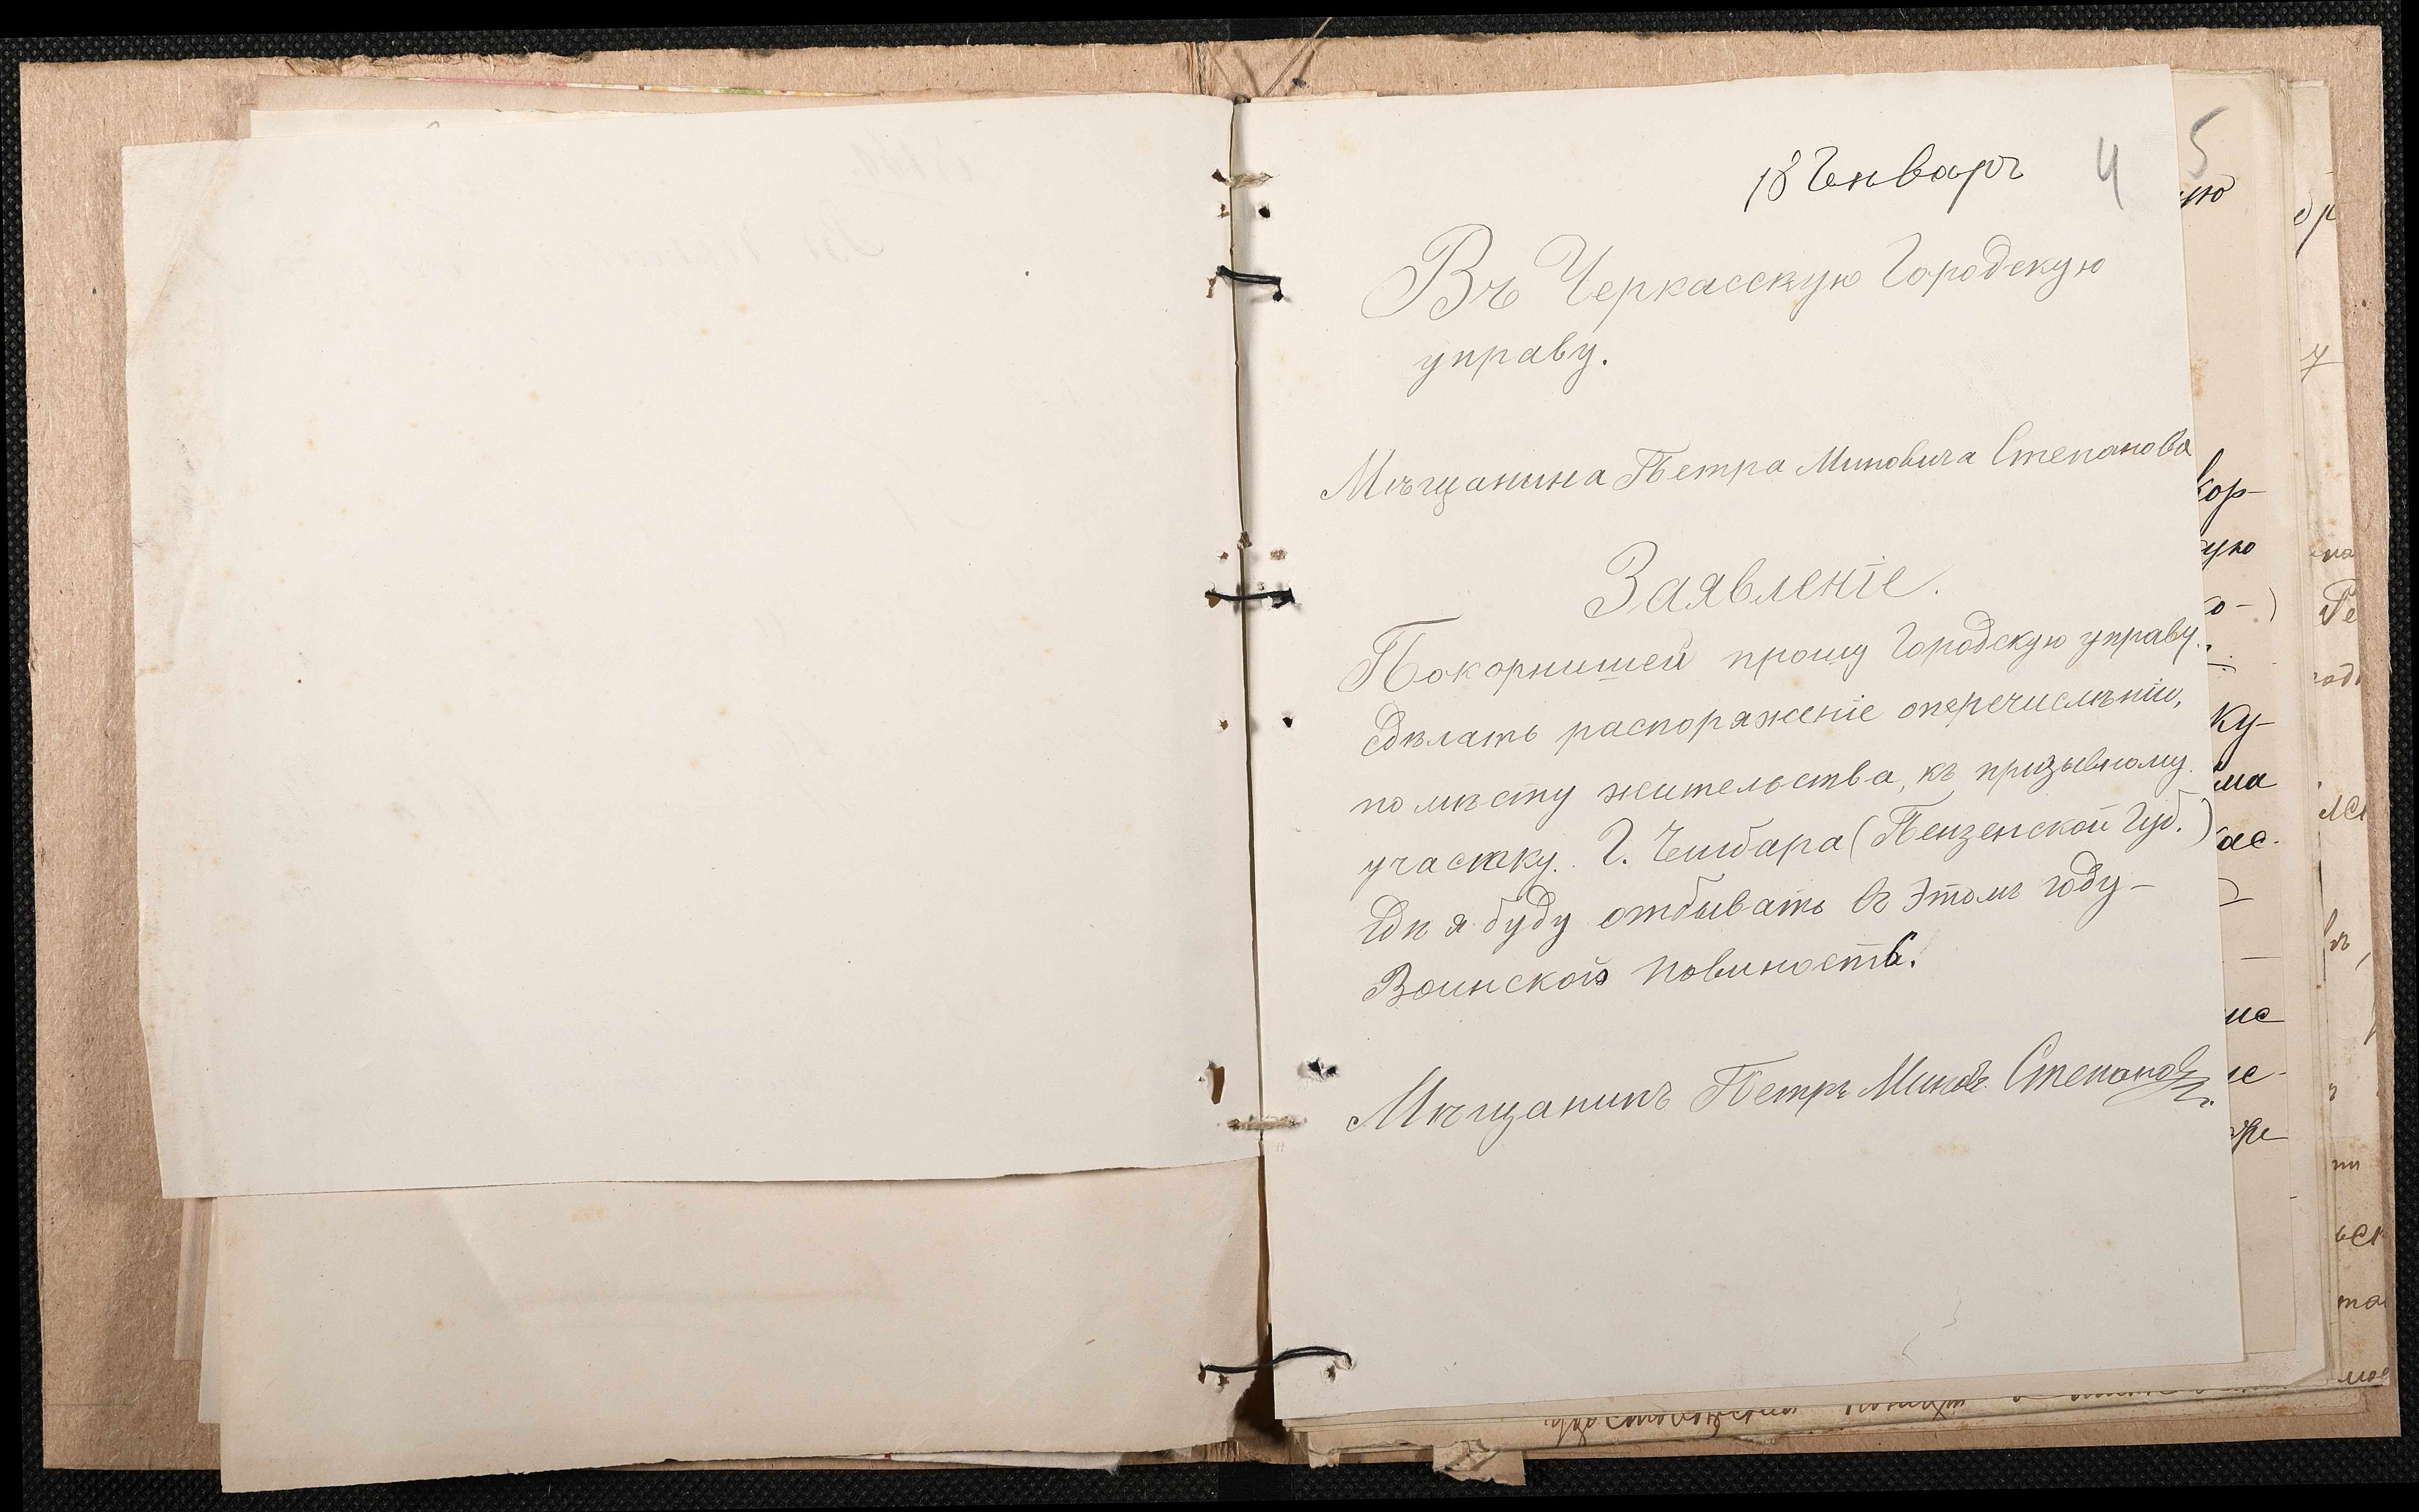 18 Генваръ
4
5
Въ Черкасскую Городскую
управу.
Мѣщанина Петра Миновича Степанова
Заявленіе.
Покорнишеи прошу Городскую управу.
Сдѣлать распоряженіе оперечислѣніи,
по мѣсту жительства, къ призывному
участку. Г. Чембара (Пензенской Губ.)
Гдѣ я буду отбывать въ этомъ году-
Воинской повиность.
Мѣщанинъ Петръ Минов. Степановъ